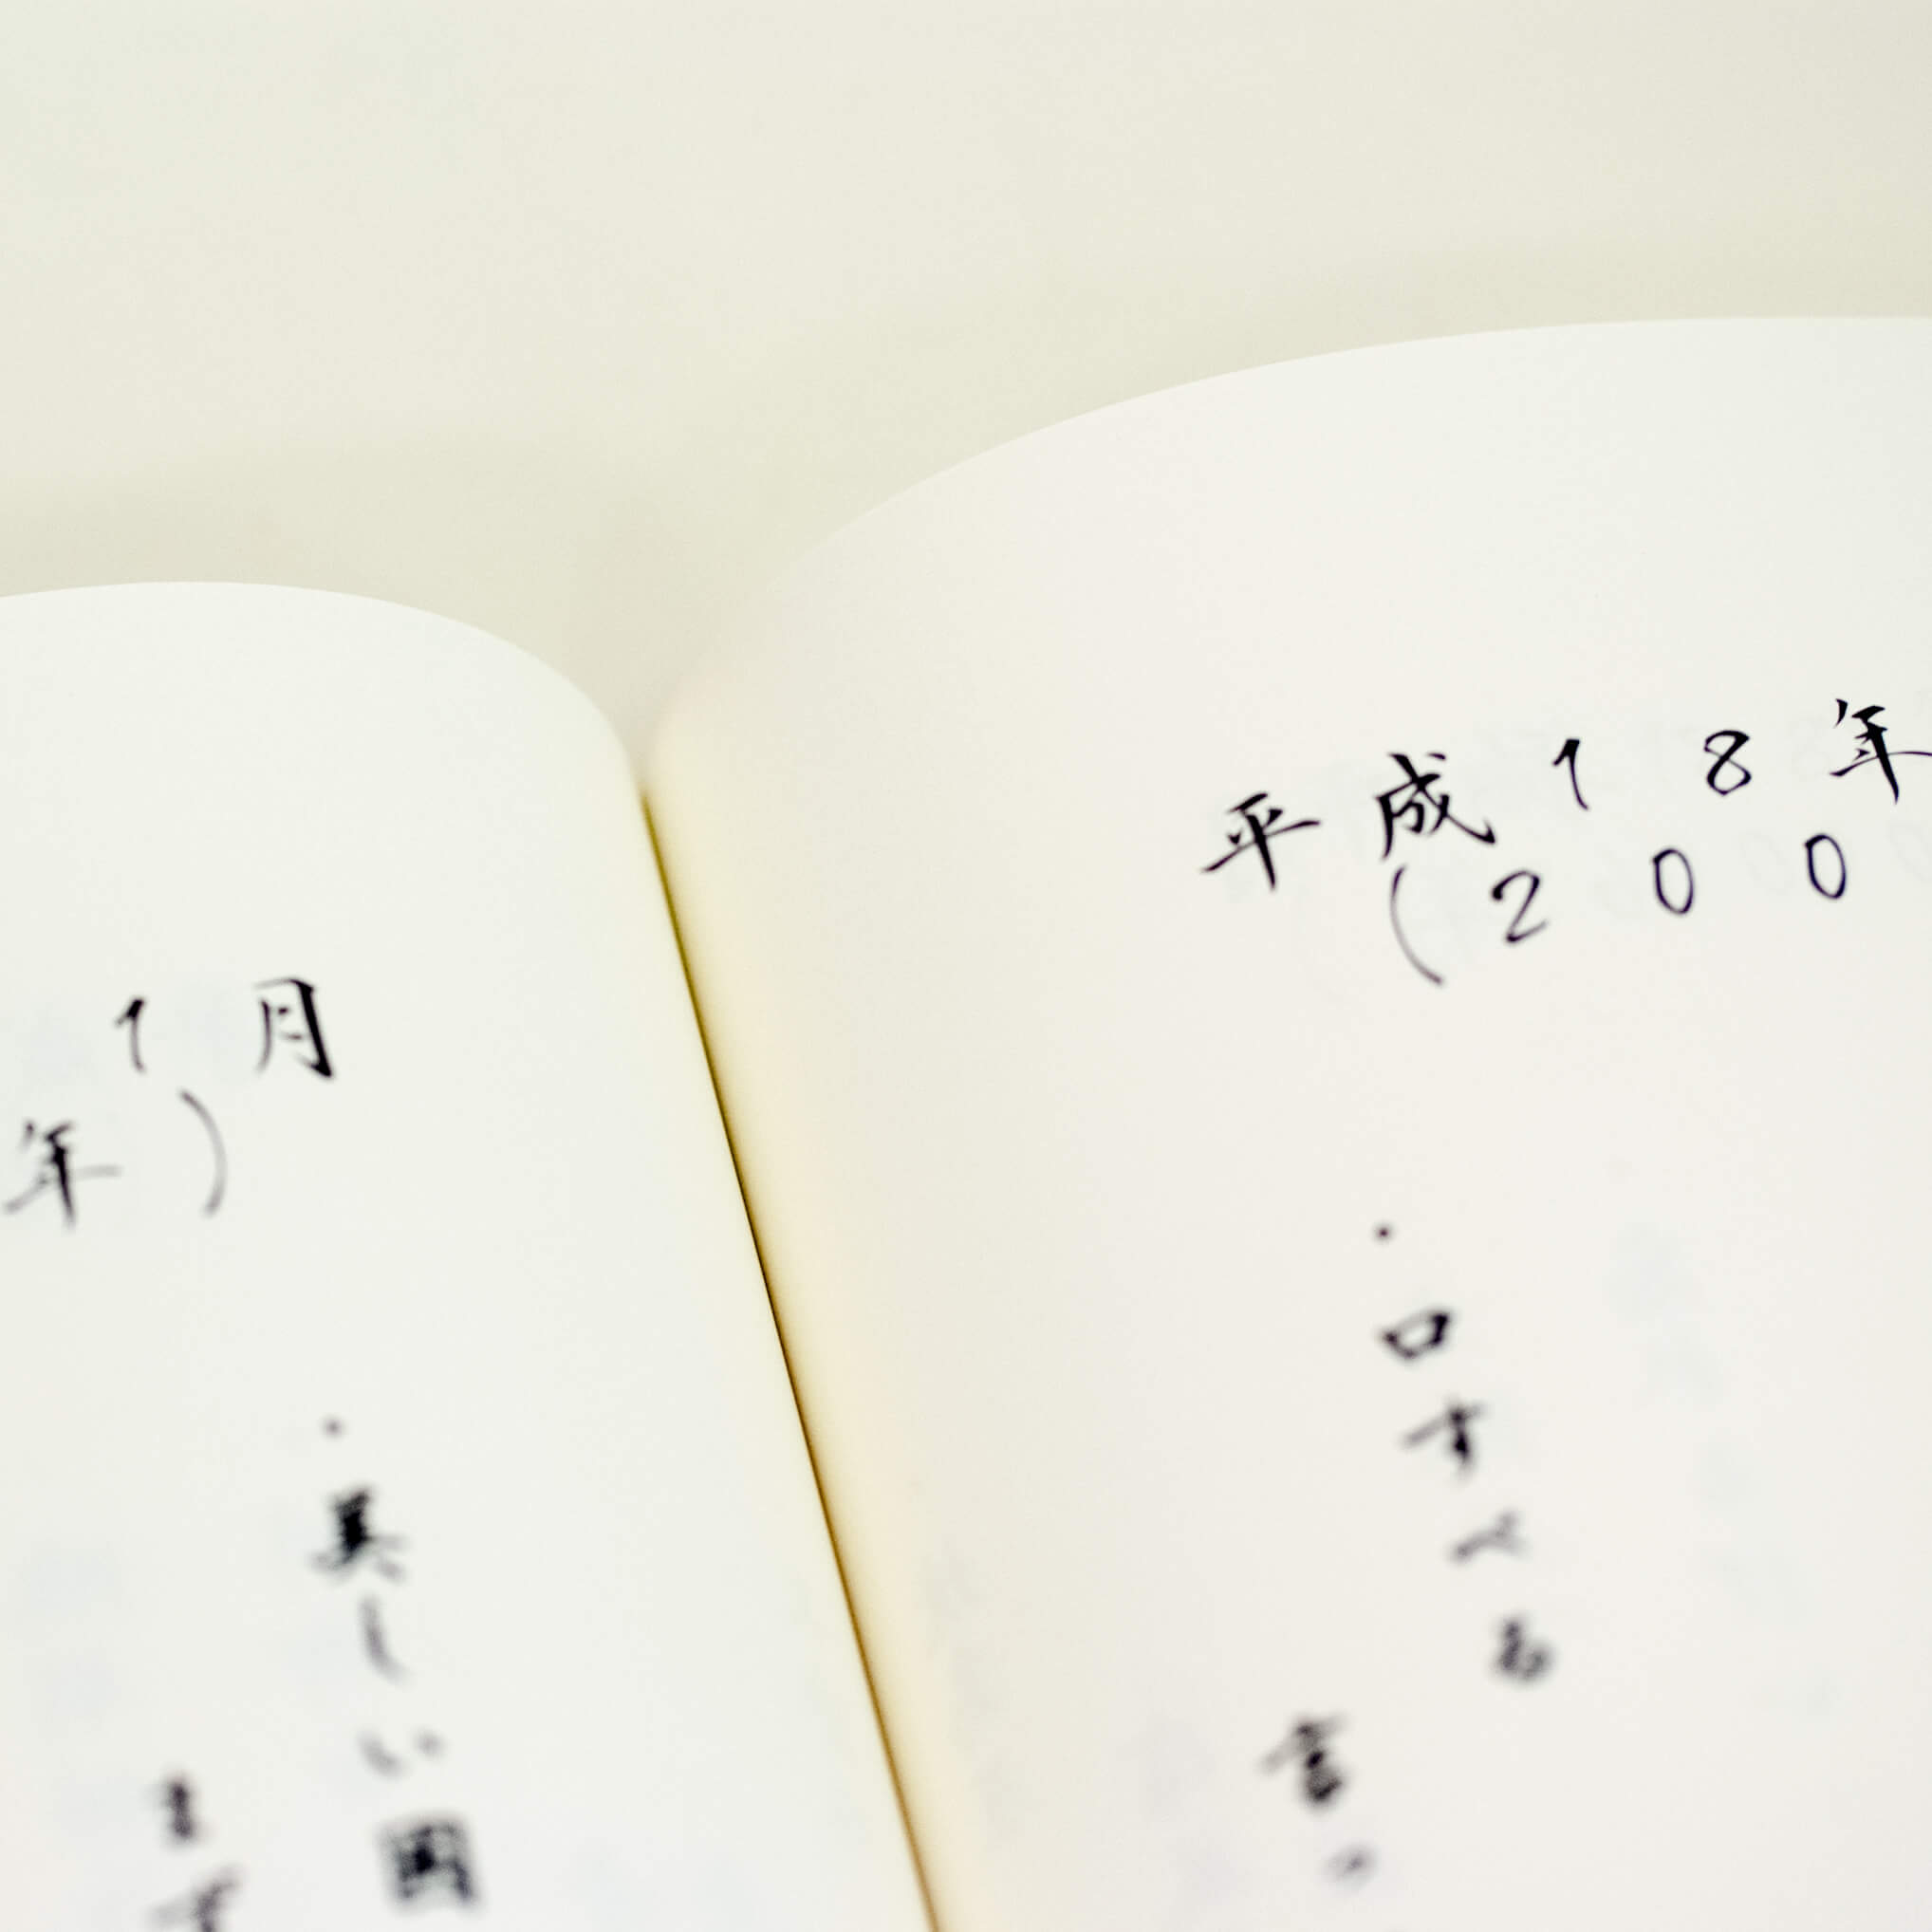 平成18年
(200
・口すべる
言っ
1月
年)
・美しい国
ます